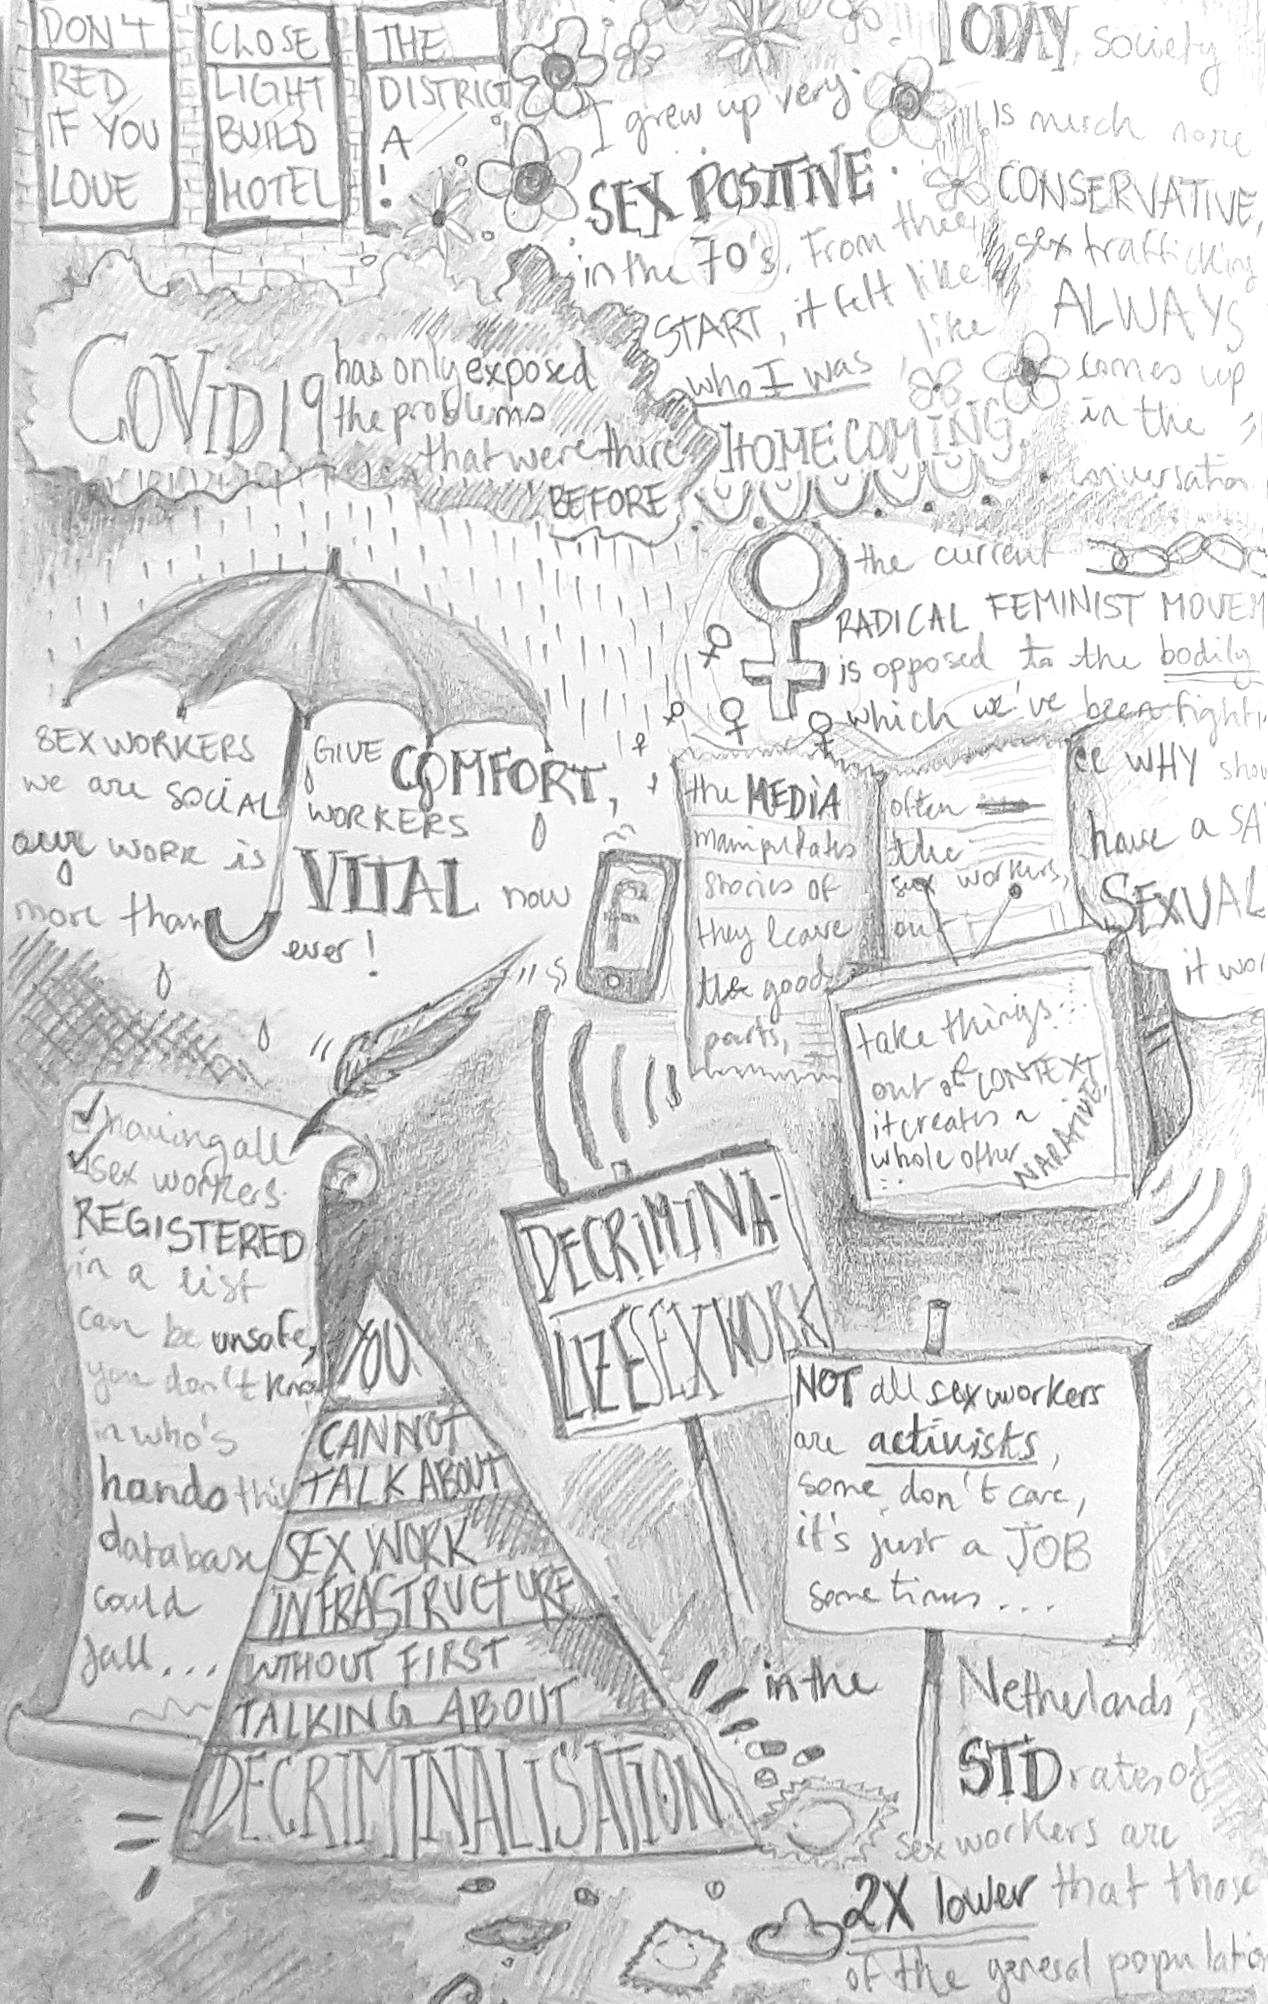 DON'T CLOSE THE
RED LIGHT DISTRICT
IF YOU BUILD A
LOVE HOTEL !
I grew up very
SEX POSITIVE
in the 70's. From the
START, it felt like
like
who I was
HOMECOMING.
TODAY, society
is much more
CONSERVATIVE,
sex trafficking
ALWAYS
comes up
in the
conversation
COVID19 has only exposed
the problems
that were there
BEFORE
the current
RADICAL FEMINIST MOVEM
is opposed to the bodily
which we've been fighti
SEX WORKERS GIVE COMFORT,
we are SOCIAL WORKERS
our work is VITAL now
more than ever!
f
the MEDIA often
manipulates the
stories of sex workers,
they leave out
the good
parts,
ce WHY sho
have a SA
SEXUAL
it wor
take things
out of CONTEXT
it creates a
whole other
NARATIVE!
having all
sex workers
REGISTERED
in a list
can be unsafe,
you don't kno
in who's
hands this
database
could
fall...
YOU
CANNOT
TALK ABOUT
SEX WORK
INFRASTRUCTURE
WITHOUT FIRST
TALKING ABOUT
DECRIMINALISATION
DECRIMINA-
LIZE SEX WORK
NOT all sex workers
are activists,
some don't care,
it's just a JOB
sometimes...
in the Netherlands,
STD rates of
sex workers are
2X lower that those
of the general populatio